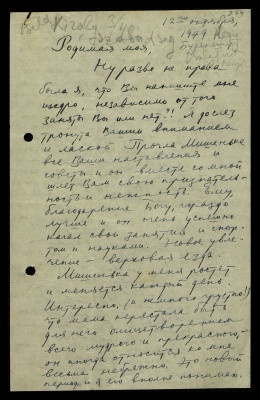 12ое октября,
1949
Родимая моя,
Ну разве не права
была я, что Вы напишите мне
щедро, независимо от того
заняты Вы или нет?! Я до слез
тронута Вашим вниманием
и лаской. Прочла Мишеньке
все Ваши наставления и
советы и он вместе со мной
шлет Вам свою признатель-
ность и нежность. Ему,
благодарение Богу, гораздо
лучше и он очень успешно
начал свои занятия и спор-
том и науками. Новое увле-
чение - верховая езда.
Мишенька у меня растет
и меняется каждый день.
Интересно, (а немного грустно!)
что мама перестала быть
для него олицетворением
всего мудрого и прекрасного -
он иногда относится ко мне
весьма небрежно. Это новый
период и я его вполне понимаю.